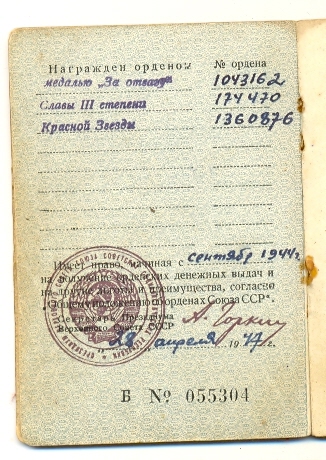 Награжден орденом № ордена
медалью „За отвагу" 1043162
Славы III степени 174470
Красной Звезды 1360876
Имеет право, начиная с сентябр 1944 г.
на получение орденских денежных выдач и
на другие льготы и преимущества, согласно
„Общему положению об орденах Союза ССР".
Секретарь Президиума
Верховного Совета СССР А. Горкин
„28" апреля 1947 г.
Б № 055304